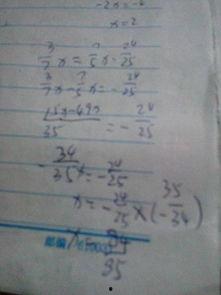 -2x=-4
x=2
3/7 x = 7/5 x - 24/25
3/7 x - 7/5 x = - 24/25
15x-49x / 35 = - 24/25
- 34/35 x = - 24/25
x = - 24/25 × (- 35/34)